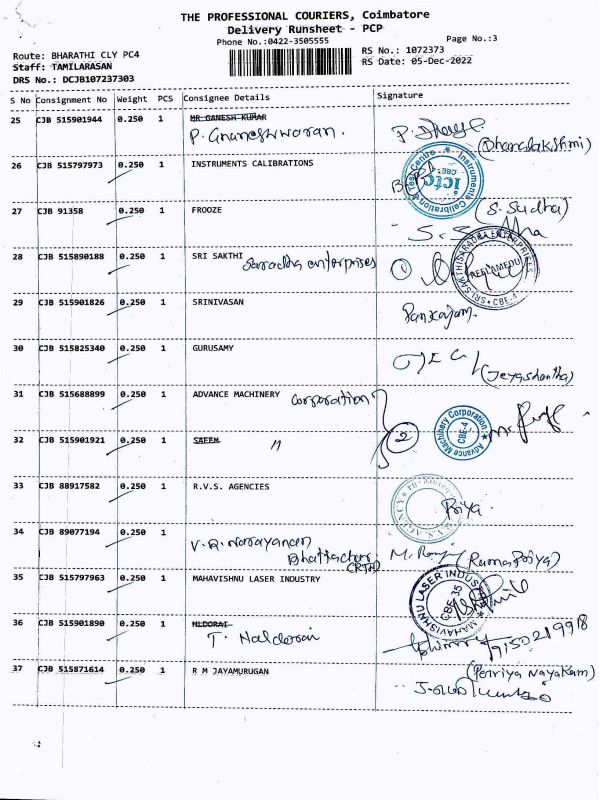 THE PROFESSIONAL COURIERS, Coimbatore
Delivery Runsheet - PCP
Phone No.:0422-3505555
Page No.:3
Route: BHARATHI CLY PC4
RS No.: 1072373
Staff: TAMILARASAN
RS Date: 05-Dec-2022
DRS No.: DCJB107237303
S No Consignment No Weight PCS Consignee Details Signature
25 CJB 515901944 0.250 1 MR GANESH KUMAR
P. Gnaneshwaran.
(Dhanalakshmi)
26 CJB 515797973 0.250 1 INSTRUMENTS CALIBRATIONS
Instruments Calibration & Test Centre
ictc
CBE
27 CJB 91358 0.250 1 FROOZE
(S. Sudha)
28 CJB 515890188 0.250 1 SRI SAKTHI Saradha enterprises
1
SRI SAKTHI SARADHA ENTERPRISES
PEELAMEDU
CBE-4
29 CJB 515901826 0.250 1 SRINIVASAN
Pankajam.
30 CJB 515825340 0.250 1 GURUSAMY
(Jeyashantha)
31 CJB 515688899 0.250 1 ADVANCE MACHINERY Corporation
Advance Machinery Corporation
CBE-4
32 CJB 515901921 0.250 1 SAEEM "
2
33 CJB 88917582 0.250 1 R.V.S. AGENCIES
Priya.
34 CJB 89077194 0.250 1
V.R. Narayanan
M. (Ramapriya)
35 CJB 515797963 0.250 1 MAHAVISHNU LASER INDUSTRY
MAHAVISHNU LASER INDUSTRY
CBE-35
36 CJB 515901890 0.250 1 NLDORAI
T. Naldorai
9150219918
(Periya Nayakam)
37 CJB 515871614 0.250 1 R M JAYAMURUGAN